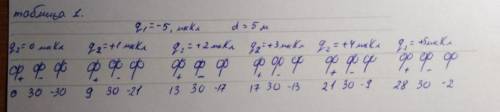 таблица 1.
q₁ = -5, мкКл d = 5 м
q₂ = 0 мкКл q₂ = +1 мкКл q₂ = +2 мкКл q₂ = +3 мкКл q₂ = +4 мкКл q₂ = +5 мкКл
φ φ φ φ φ φ φ φ φ φ φ φ φ φ φ φ φ φ
+ - + - + - + - + - + -
0 30 -30 9 30 -21 13 30 -17 17 30 -13 21 30 -9 28 30 -2